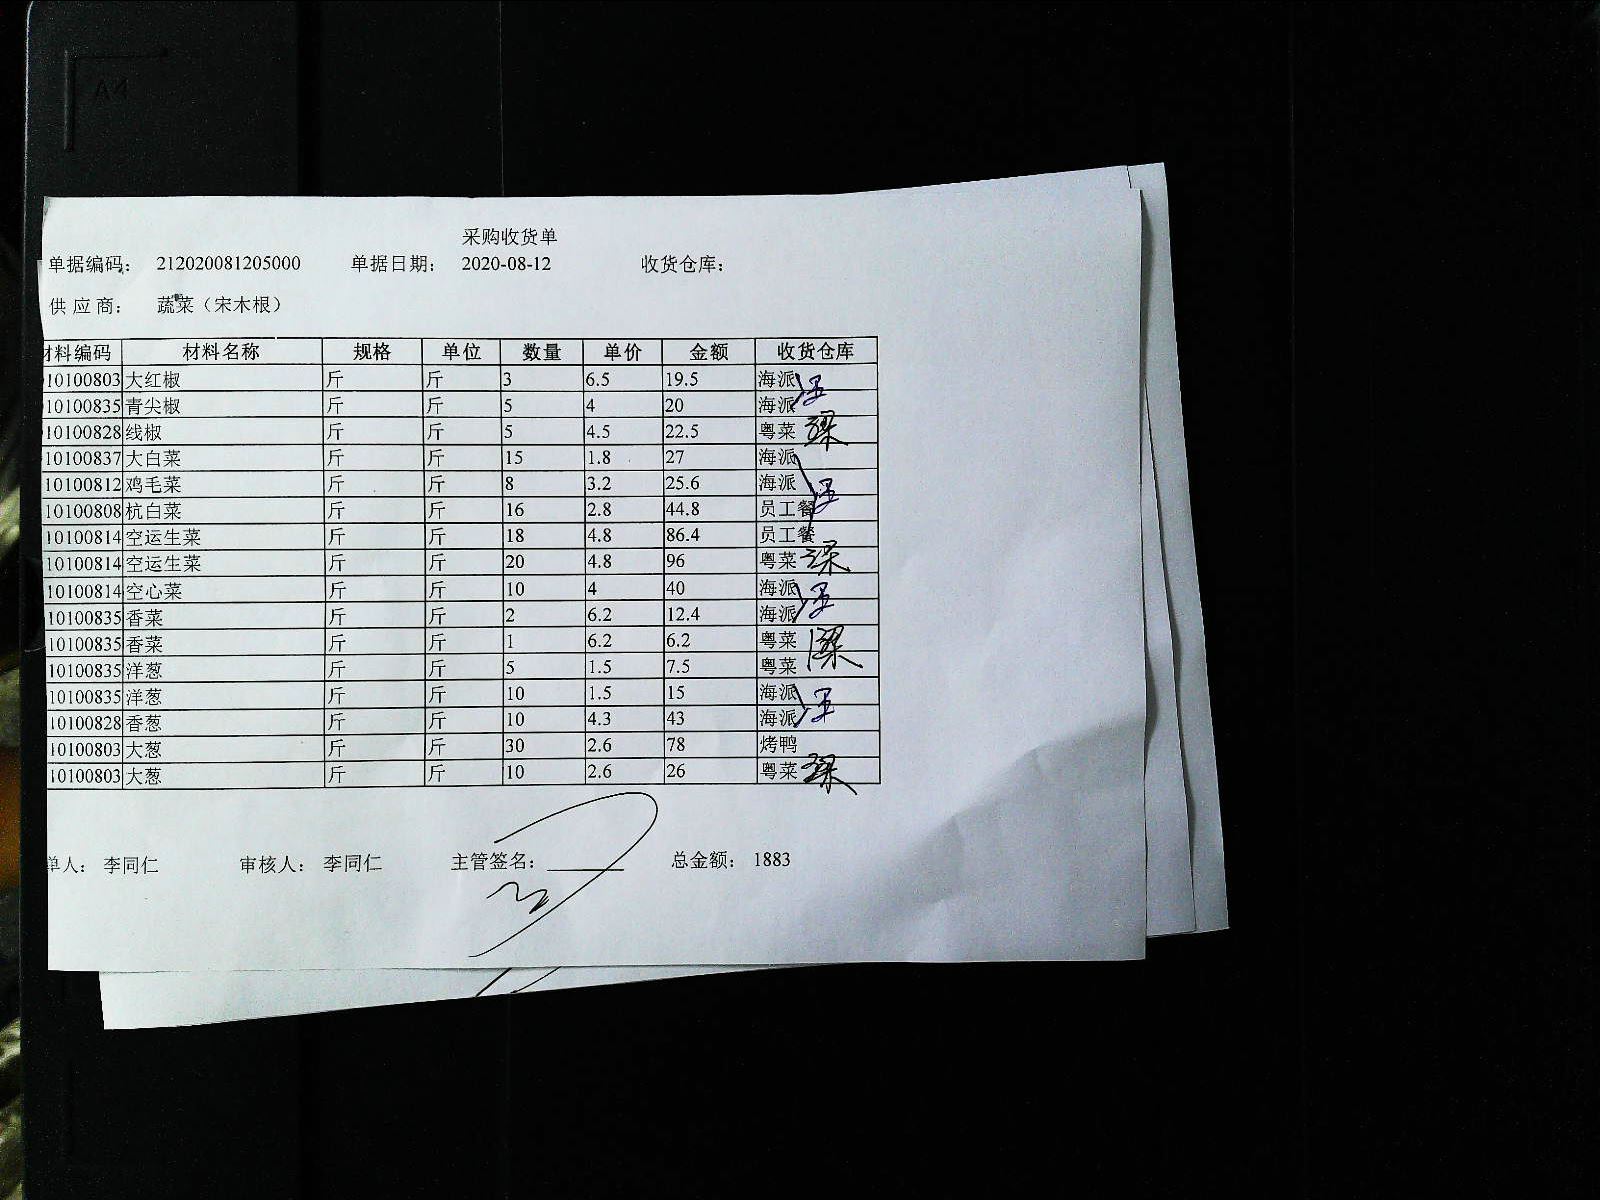 A4
采购收货单
单据编码： 212020081205000 单据日期： 2020-08-12 收货仓库：
供应商： 蔬菜（宋木根）
材料编码 材料名称 规格 单位 数量 单价 金额 收货仓库
10100803 大红椒 斤 斤 3 6.5 19.5 海派
10100835 青尖椒 斤 斤 5 4 20 海派
10100828 线椒 斤 斤 5 4.5 22.5 粤菜 梁
10100837 大白菜 斤 斤 15 1.8 27 海派
10100812 鸡毛菜 斤 斤 8 3.2 25.6 海派
10100808 杭白菜 斤 斤 16 2.8 44.8 员工餐
10100814 空运生菜 斤 斤 18 4.8 86.4 员工餐
10100814 空运生菜 斤 斤 20 4.8 96 粤菜 梁
10100814 空心菜 斤 斤 10 4 40 海派
10100835 香菜 斤 斤 2 6.2 12.4 海派
10100835 香菜 斤 斤 1 6.2 6.2 粤菜 梁
10100835 洋葱 斤 斤 5 1.5 7.5 粤菜
10100835 洋葱 斤 斤 10 1.5 15 海派
10100828 香葱 斤 斤 10 4.3 43 海派
10100803 大葱 斤 斤 30 2.6 78 烤鸭
10100803 大葱 斤 斤 10 2.6 26 粤菜 梁
单人： 李同仁 审核人： 李同仁 主管签名： 总金额： 1883